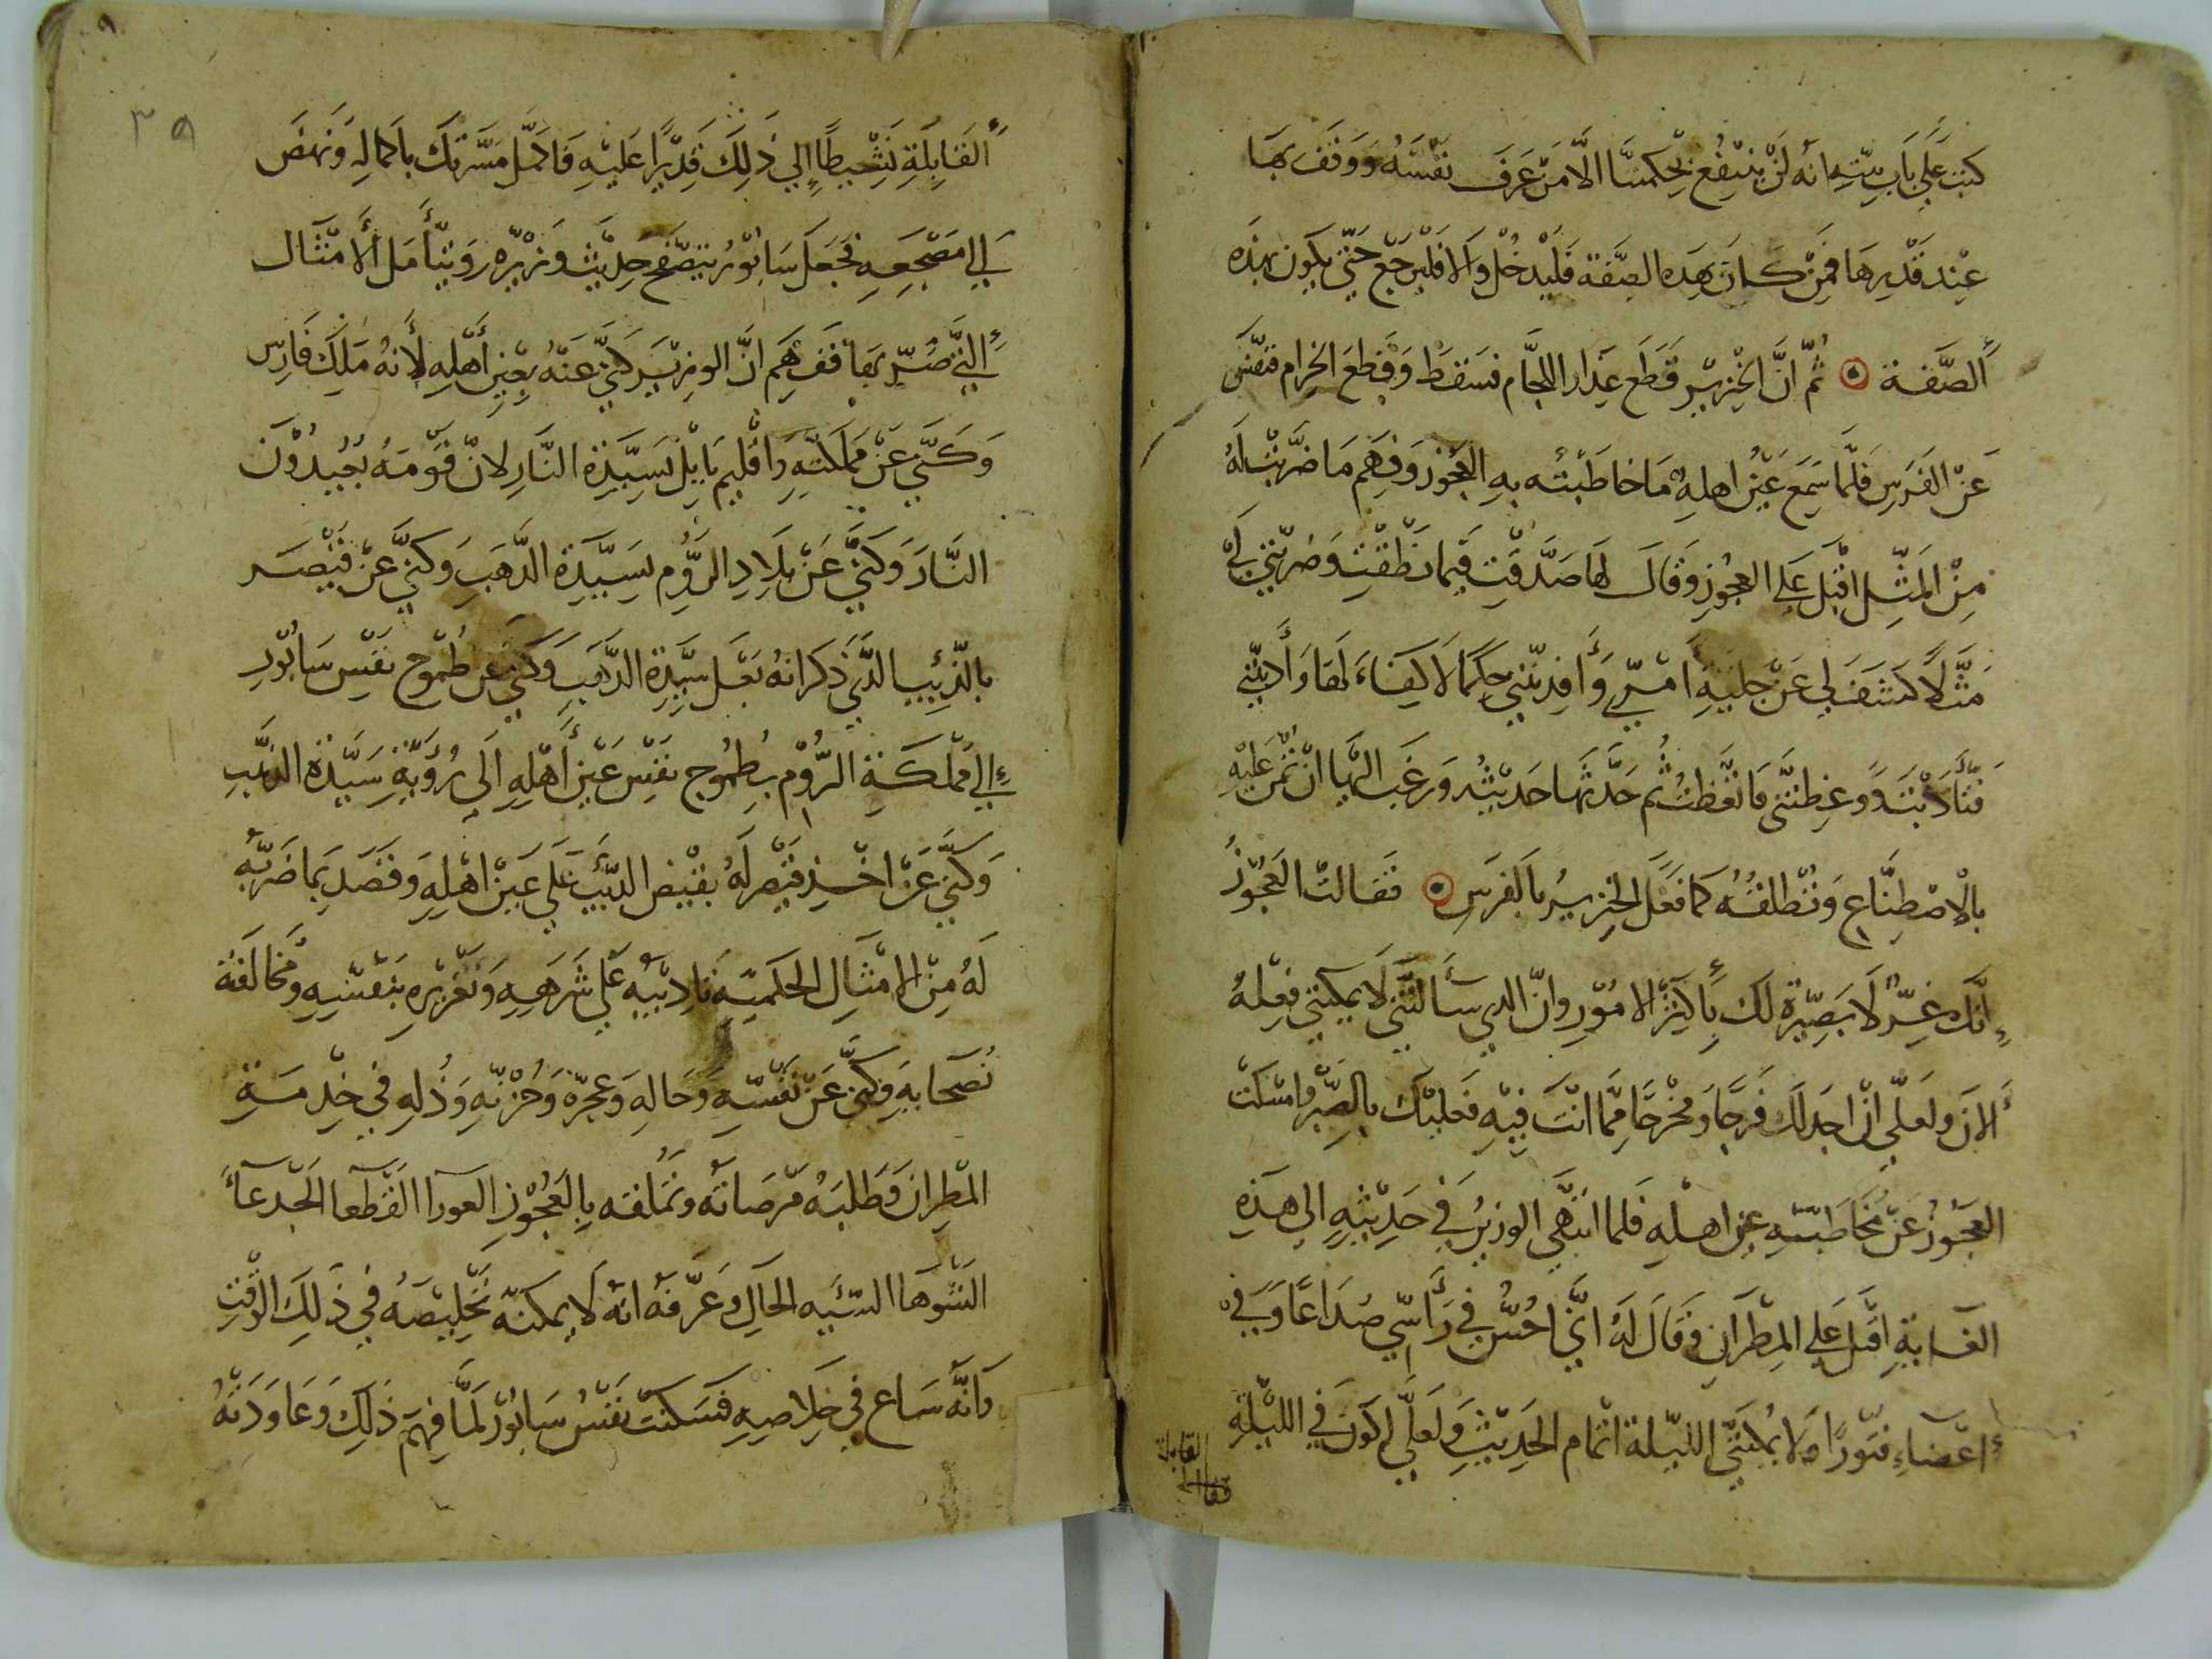 كتب علي باب بيته انه لن ينتفع بحكمتنا الا من عرف نفسه ووقف بها
عند قديرها فمن كان بهده الصفة فليدخل والا فليرجع حتي يكون بهذه
الصفة ثم ان الخنزير قطع عدار اللجام فسقط وقطع الحزام فنفس
عن الفرس فلما سمع عين اهله ما خاطبته به العجوز وفهم ما ضربت له
من المثل اقبل علي العجوز وقال لها صدقت فيما نطقت وضربتي لي
مثلا كشف لي عن جلية امري وأفدتني حكما لا كفاء لها وأدبتني
فتأدبت وعظتني فاتعظت ثم حدثها حديثه ورغب اليها ان تمن عليه
بالاصطناع وتطلقه كما فعل الخنزير بالفرس فقالت العجوز
إنك غر لا بصيرة لك بأكثر الامور وان الدي سألتني لا يمكنني فعله
الان ولعلي ان اجد لك فرجا ومخرجا مما انت فيه فعليك بالصبر وامسكت
العجوز عن مخاطبته عين اهله فلما انتهي الوزير في حديثه الي هذه
الغابة اقبل علي المطران وقال له اني احس في رأسي صداعا وفي
اعضاءي فتورا ولا يمكنني الليلة اتمام الحديث ولعلي اكون في الليلة
القابلة
فقال له
٣٩
القابلة نشيطا إلي ذلك قديرا عليه فاكمل مسرتك باكماله ونهض
الي مضجعه فجعل سابور يتصفح حديث وزيره ويتأمل الامثال
التي ضرب بها ففهم ان الوزير كني عنه بعين أهله لأنه ملك فارس
وكني عن مملكته واقليم بابل بسيدة النار لان قومه يعبدون
النار وكني عن بلاد الروم بسيدة الدهب وكني عن قيصر
بالذئب الذي ذكر انه بعل سيدة الدهب وكني عن طموح نفس سابور
إلي مملكة الروم بطموح نفس عين أهله الي رؤية سيدة الذهب
وكني عن اخذ قيصر له بقبض الدئب علي عين اهله وقصد بما ضربه
له من الامثال الحكمية تاديبه علي شرهه وتغريره بنفسه ومخالفة
نصحائه وكني عن نفسه وحاله وعجزه وحزنه وذله في خدمة
المطران وطلبه مرضاته وتملقه بالعجوز العورا القطعا الجدعاء
الشوها السئيه الحال وعرفه انه لا يمكنه تخليصه في ذلك الوقت
وانه ساع في خلاصه فسكنت نفس سابور لما فهم ذلك وعاودته